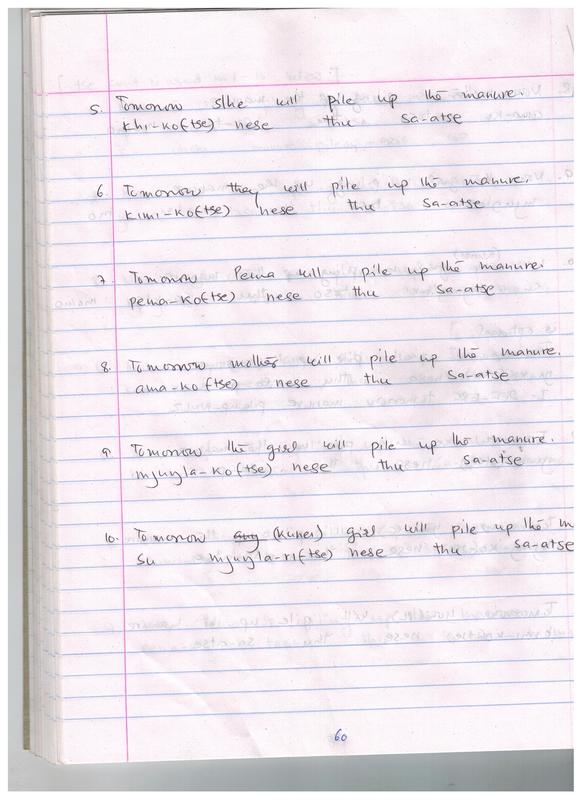 5. Tomorrow s/he will pile up the manure.
khi-ko(tse) nese thu sa-atse
6. Tomorrow they will pile up the manure.
kimi-ko(tse) nese thu sa-atse
7. Tomorrow Pema will pile up the manure.
pema-ko(tse) nese thu sa-atse
8. Tomorrow mother will pile up the manure.
ama-ko(tse) nese thu sa-atse
9. Tomorrow the girl will pile up the manure.
mjuŋla-ko(tse) nese thu sa-atse
10. Tomorrow any (kunei) girl will pile up the m
su mjuŋla-ri(tse) nese thu sa-atse
60